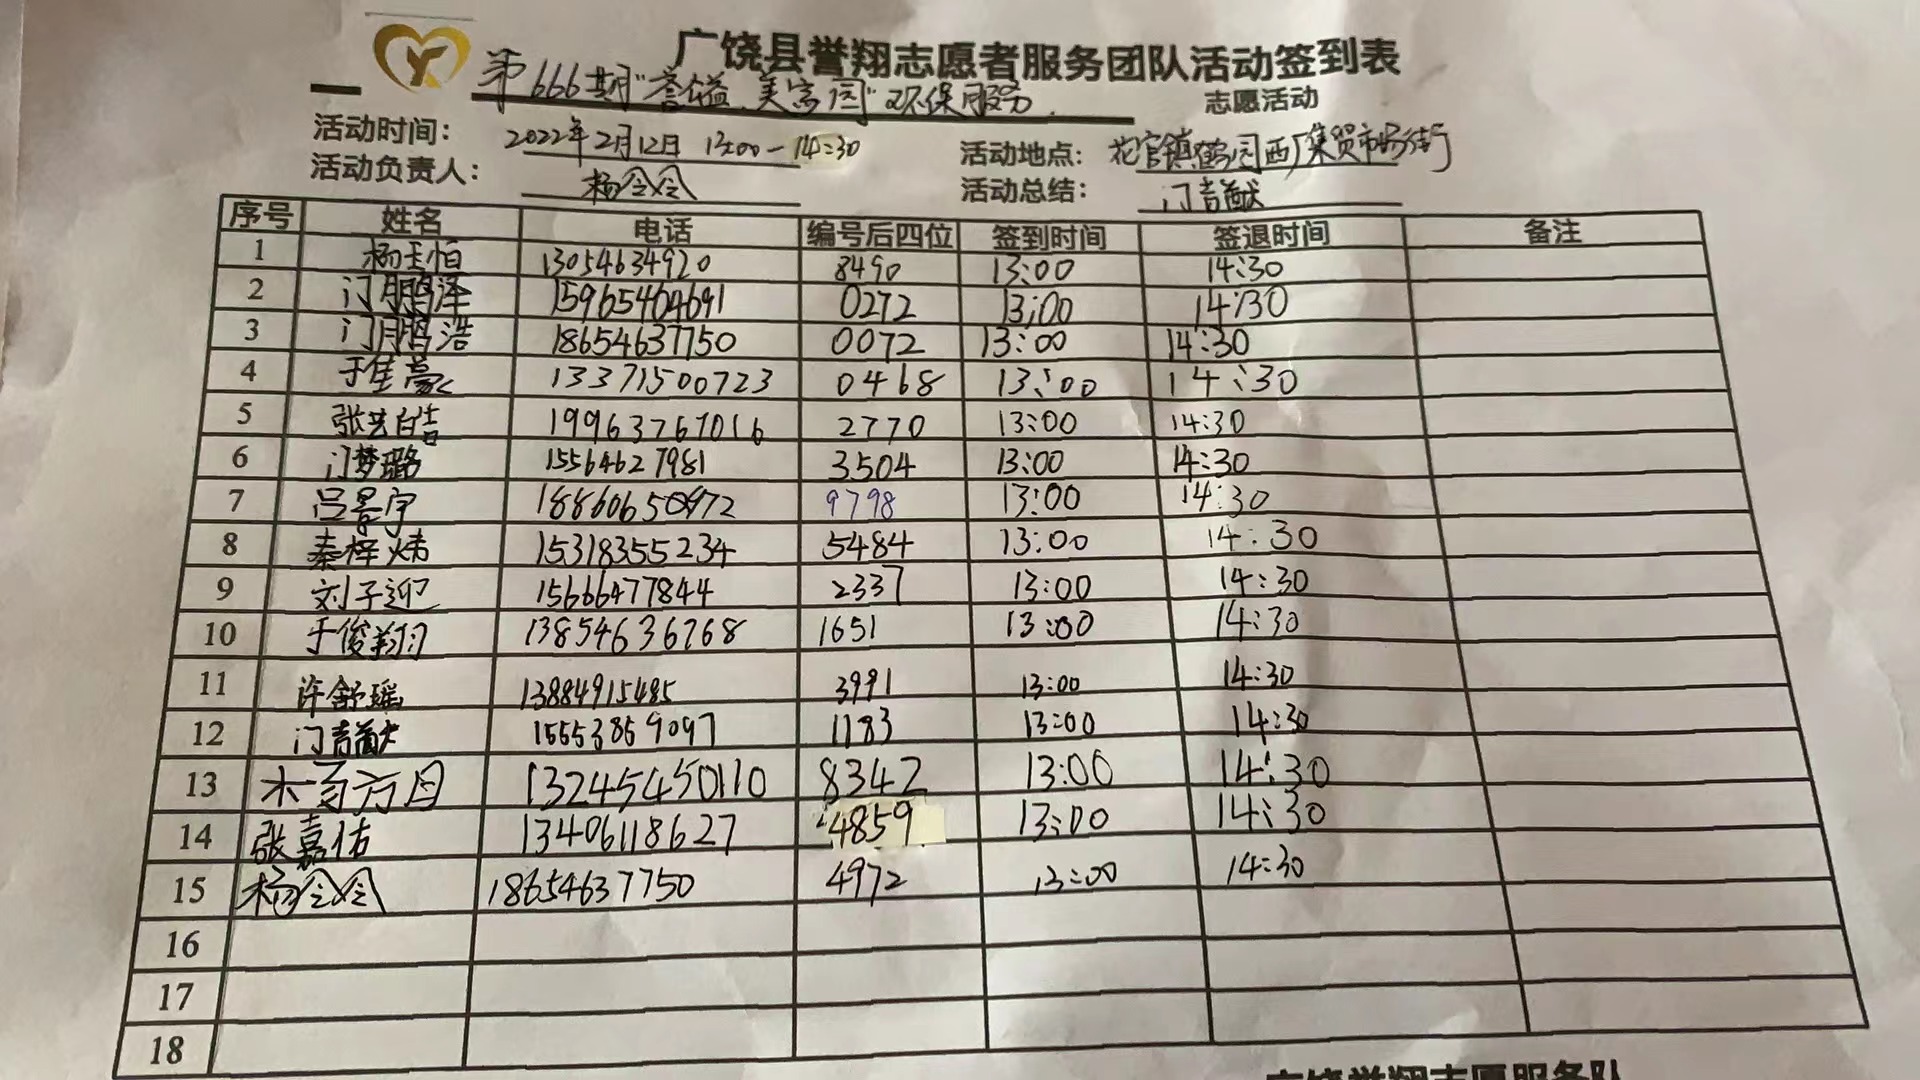 广饶县誉翔志愿者服务团队活动签到表
第666期"誉溢美宫园"环保服务 志愿活动
活动时间: 2022年2月12日 13:00-14:30 活动地点: 花官镇鹤园西厂集贸市场街
活动负责人: 杨令令 活动总结: 门吉猷
序号 姓名 电话 编号后四位 签到时间 签退时间 备注
1 杨玉怕 13054634920 8490 13:00 14:30
2 门鹏泽 15965464691 0272 13:00 14:30
3 门鹏浩 18654637750 0072 13:00 14:30
4 于佳豪 13371500723 0468 13:00 14:30
5 张艺皓 19963767016 2770 13:00 14:30
6 门梦璐 15564627981 3504 13:00 14:30
7 吕景宇 18860650972 9798 13:00 14:30
8 秦梓炜 15318355234 5484 13:00 14:30
9 刘子迎 15666477844 2337 13:00 14:30
10 于俊翔 13854636768 1651 13:00 14:30
11 许舒瑶 13884915485 3991 13:00 14:30
12 门吉猷 15553859097 1183 13:00 14:30
13 13245450110 8342 13:00 14:30
14 张嘉佑 13406118627 4859 13:00 14:30
15 杨令令 18654637750 4972 13:00 14:30
16
17
18
广饶誉翔志愿服务队